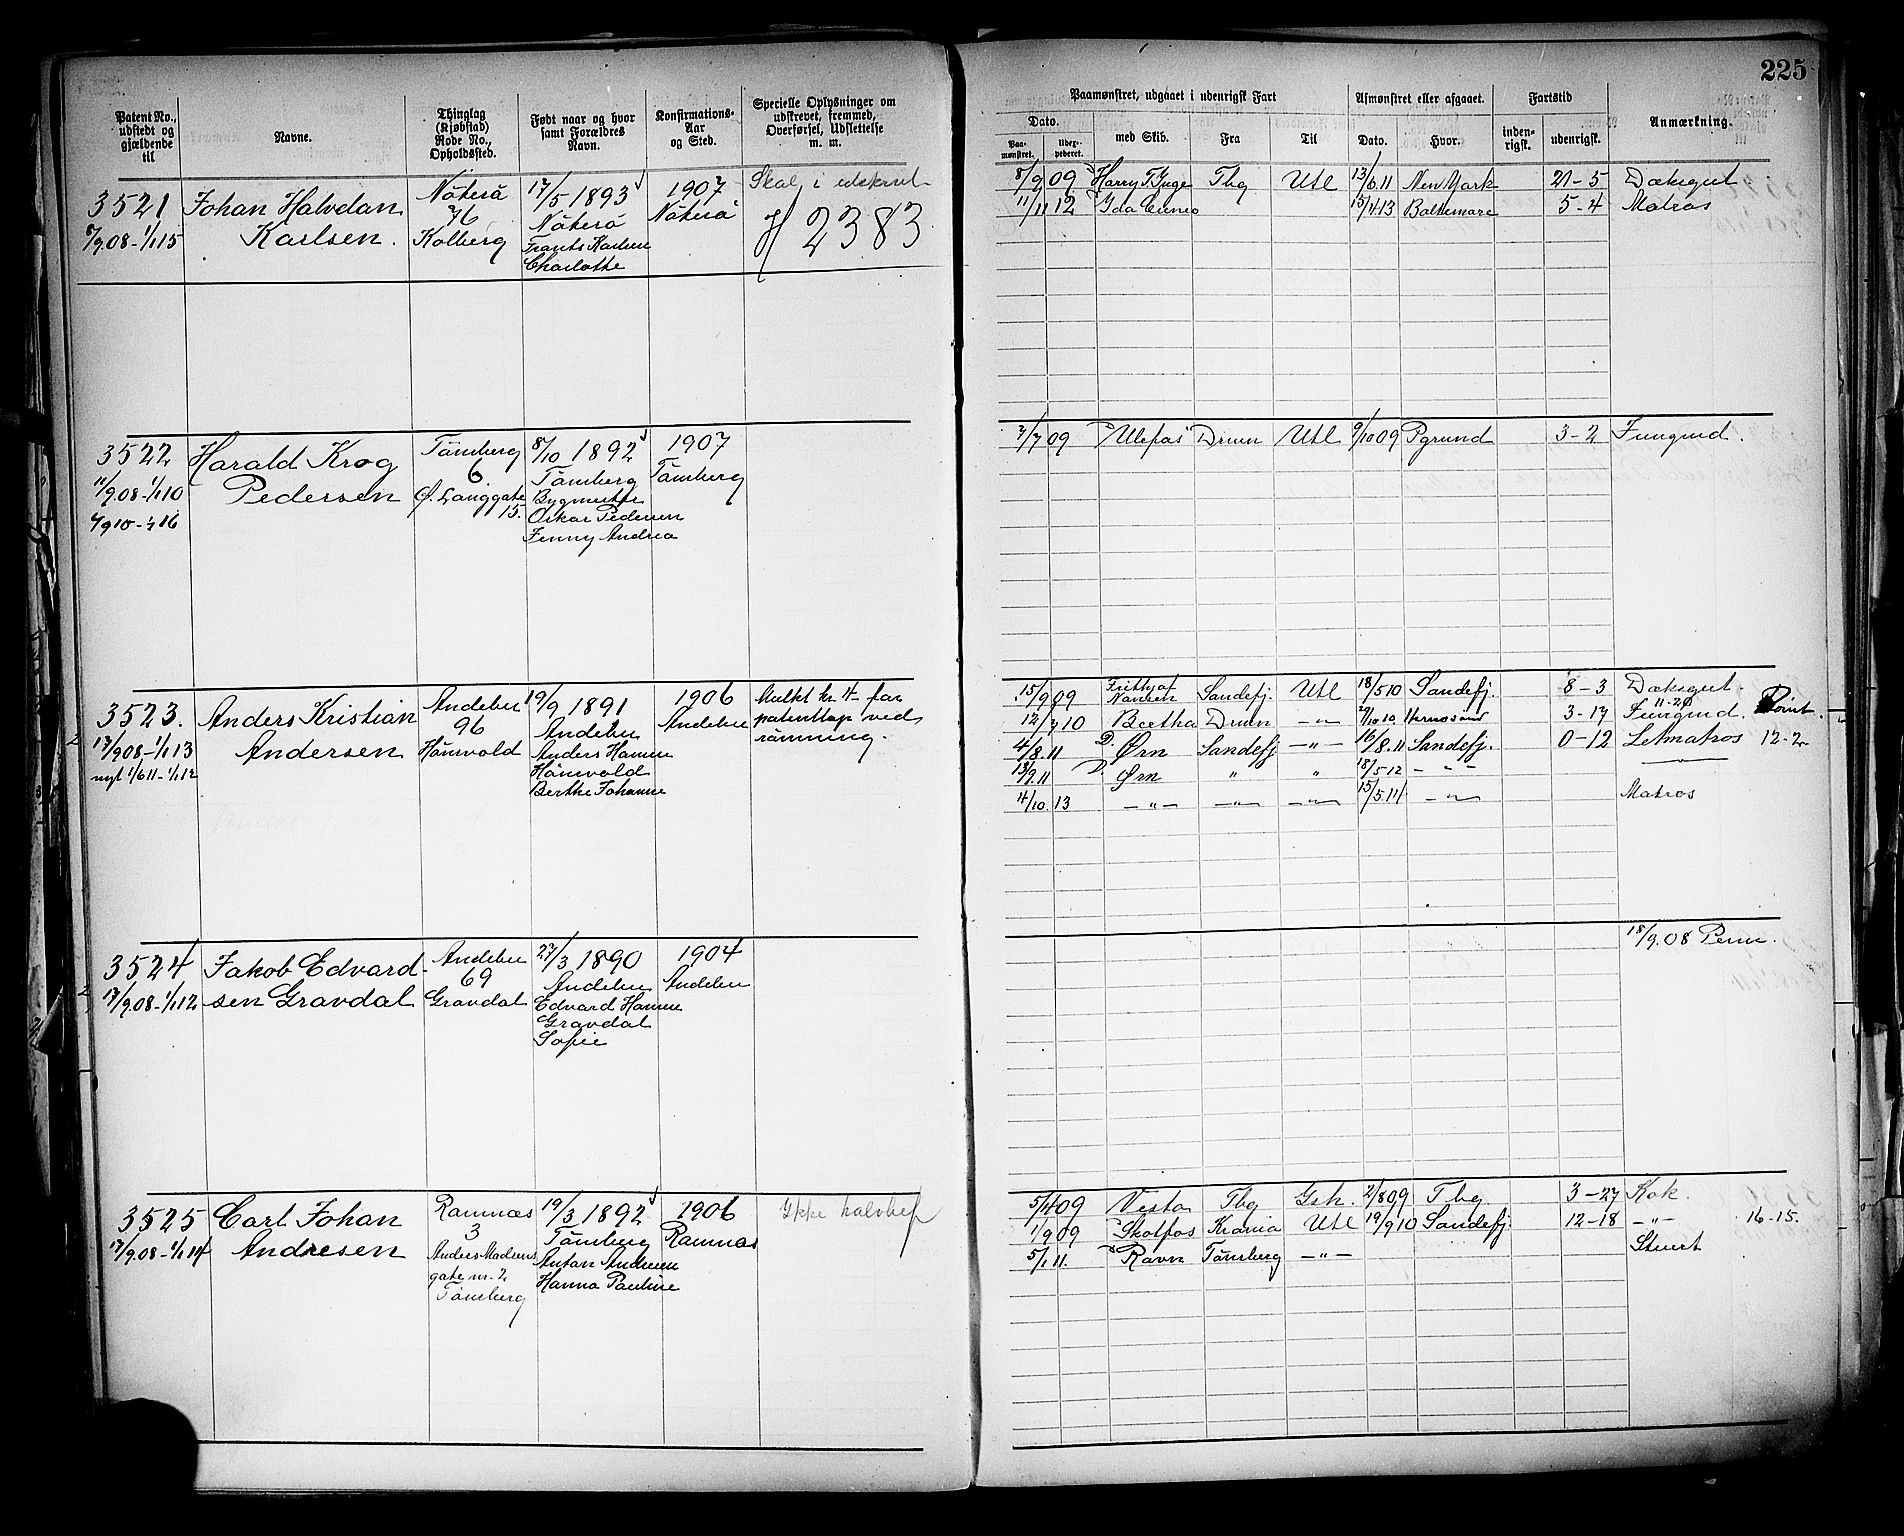 225
Patent No., udstedt og gjældende til
Navne.
Thinglag (Kjøbstad) Rode No., Opholdssted.
Født naar og hvor samt Forældres Navn.
Konfirmations-Aar og Sted.
Specielle Oplysninger om udskrevet, fremmed, Overførsel, Udslettelse m. m.
Paamønstret, udgaaet i udenrigsk Fart
Dato.
Paa-mønstret.
med Skib.
Fra
Til
Afmønstret eller afgaaet.
Dato.
Hvor.
Fartstid
inden-rigsk.
udenrigsk.
Anmærkning.
3521
7/9.08-1/1 15
Johan Halvdan
Karlsen.
Nöterö
76
Kolberg
17/5 1893
Nöterö
Frants Karlsen
Charlotte
1907
Nöterö
Skal i udskrivt
2383
8/9 09 Harry T Inge Tbg Utl 13/6.11 New York 21-5 Dæksgut
11/11 12 Ida 15/4 13 Baltimore 5-4 Matros
3522
11/9.08-1/1 10
Harald Krog
Pedersen
Tönsberg
6.
Ø. Langgate
15.
8/10 1892
Tönsberg
Bygmester
Oskar Pedersen
Jenny Andrea
1907
Tönsberg
7/7 09 "Ulefos" Drmn Utl 9/10 09 Pgrund 3-2 Jungmd.
3523.
17/9.08-1/1 13
nyt 1/6 11-1/1 12
Anders Kristian
Andersen
Andebu
96
Hånvold
19/9 1891
Andebu
Anders Hansen
Hånvold
Berthe Johanne
1906
Andebu
Mulkt kr. 4- for
patenttap ved
römning.
15/9 09 Fridtjof Nansen Sandefj. Utl 18/5 10 Sandefj. 8-3 Dæksgut.
11-20
12/7 10 Beetha Drmn -"- Hernosand 3-17 Jungmd.
4/8.11 D. Ørn Sandefj -"- 16/8.11 Sandefj. 0-12 Letmatros
13/9.11 D. Ørn " " 18/5 12 - " -
4/10. 13 -"- -"- -"- 15/5.11 -"- Matros
3524
17/9.08-1/1 12
Jakob Edvard-
sen Gravdal
Andebu
69
Gravdal
27/3 1890
Andebu
Edvard Hansen
Gravdal
Sofie
1904
Andebu
18/9.08 Perm.
3525
17/9.08-1/1 14
Carl Johan
Andresen
Ramnæs
3
Anders Madsens
gate nr. 2
Tönsberg
19/3 1892
Tönsberg
Anton Andresen
Hanna Pauline
1906
Ramnæs
Ikke halvbef
5/4 09 Vesta Tbg Gsk. 2/8 09 Tbg 3-27 Kok.
1/9 09 Skotfos Krania Utl 19/9 10 Sandefj. 12-18 -"- 16-15.
5/1 11. Ravn Tönsberg -"- Stuert